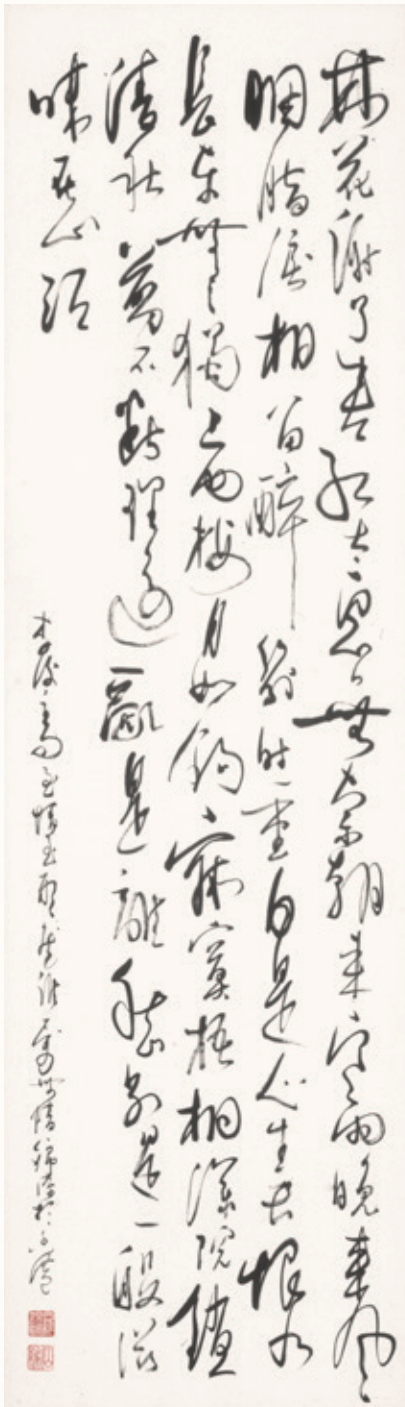 林花謝了春紅太匆匆無奈朝來寒雨晚來風
胭脂淚相留醉幾時重自是人生長恨水
長東無言獨上西樓月如鉤寂寞梧桐深院鎖
清秋剪不斷理還亂是離愁別是一般滋
味在心頭
李後主